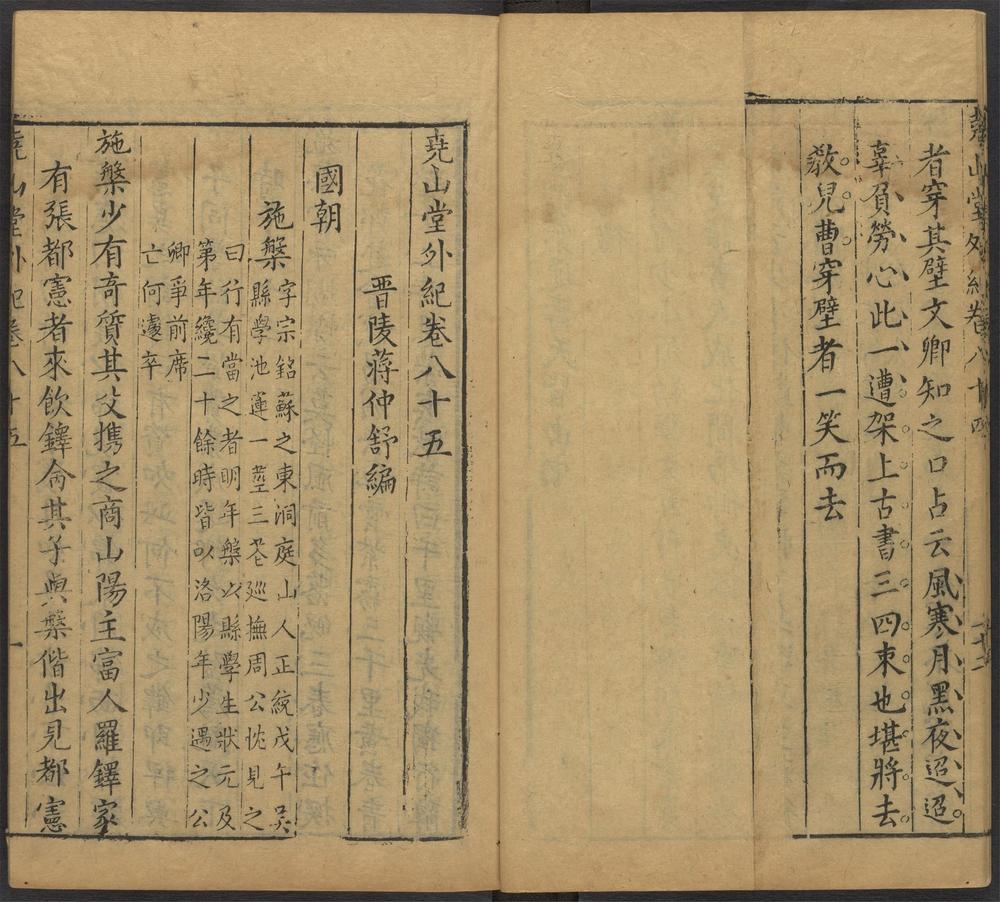 堯山堂外紀卷八十四
者穿其壁文卿知之口占云風寒月黑夜迢迢
辜負勞心此一遭架上古書三四束也堪將去
教兒曹穿壁者一笑而去
堯山堂外紀卷八十五
晋陵蔣仲舒編
國朝
施槃
字宗銘蘇之東洞庭山人正統戊午吴
縣學池蓮一莖三花廵撫周公忱見之
曰行有當之者明年槃以縣學生狀元及
第年纔二十餘時皆以洛陽年少遇之公
卿爭前席
亡何遽卒
施槃少有奇質其父携之商山陽主富人羅鐸家
有張都憲者來飲鐸命其子與槃偕出見都憲
堯山堂外紀卷八十五
一